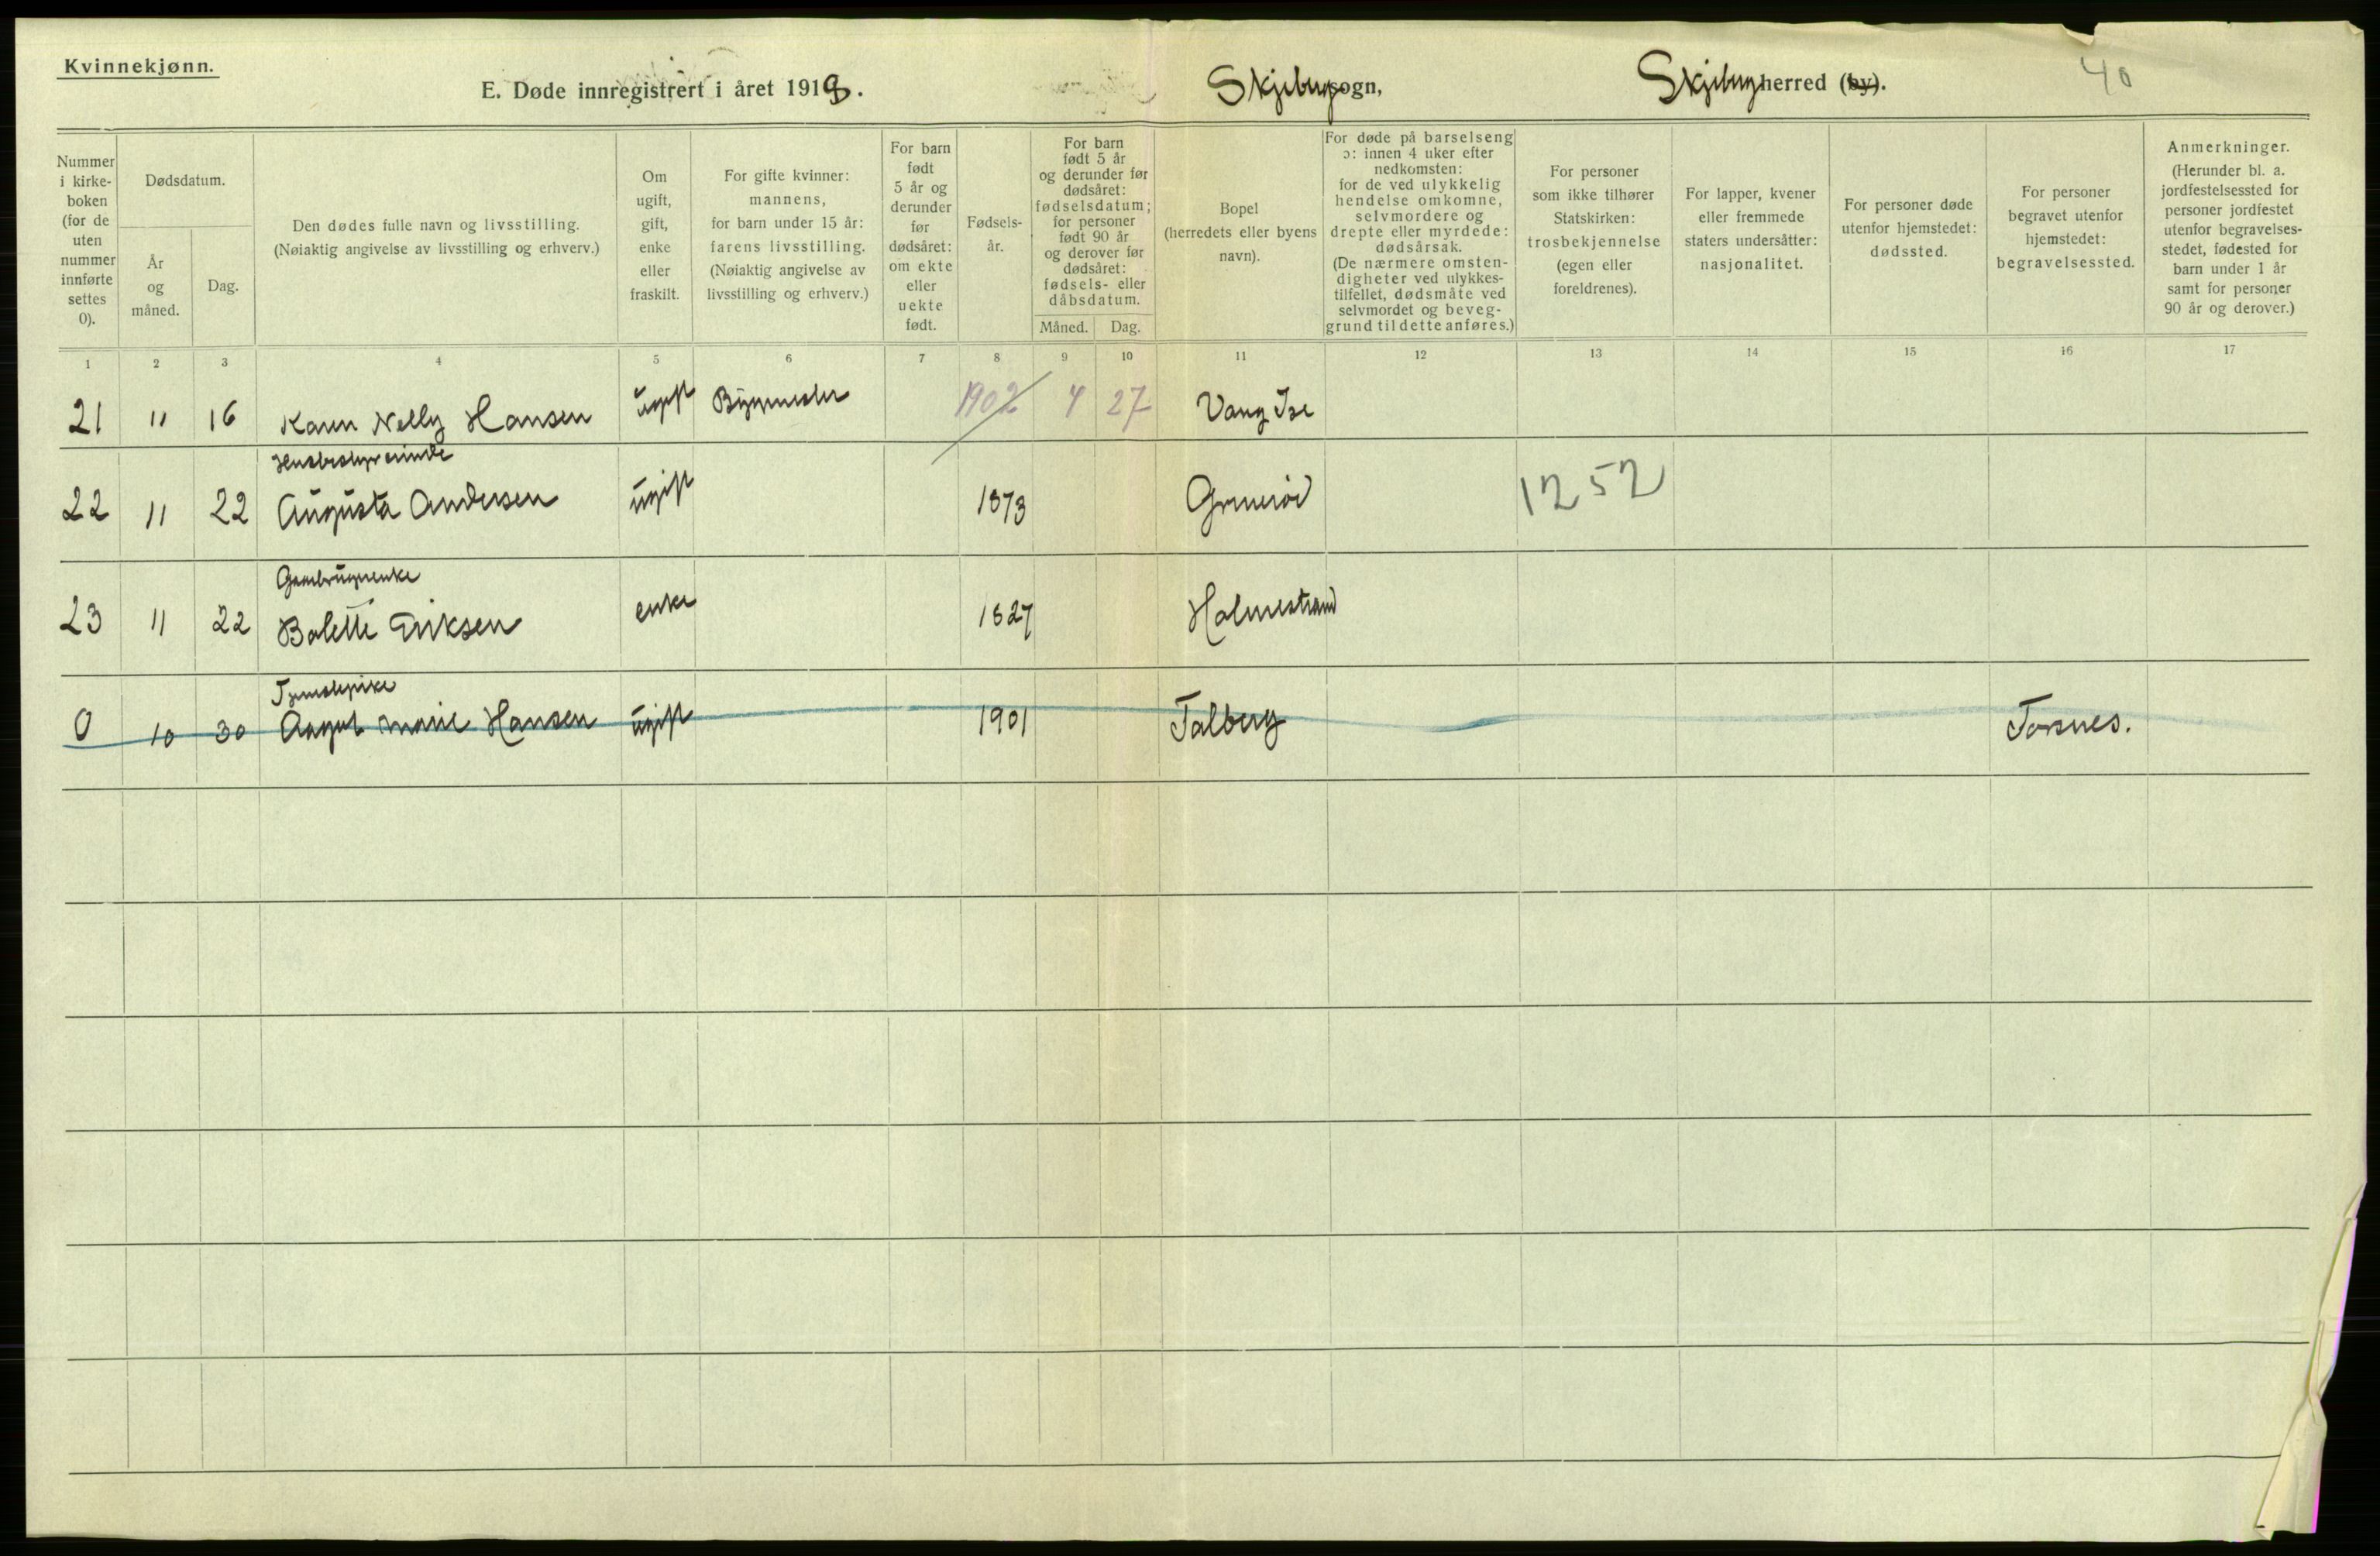 Kvinnekjønn.
E. Døde innregistrert i året 1918. Skjeberg sogn, Skjeberg herred (by). 40
Nummer i kirke- boken (for de uten nummer innførte settes 0).
Dødsdatum.
År og måned.
Dag.
Den dødes fulle navn og livsstilling.
(Nøiaktig angivelse av livsstilling og erhverv.)
Om ugift, gift, enke eller fraskilt.
For gifte kvinner: mannens, for barn under 15 år: farens livsstilling. (Nøiaktig angivelse av livsstilling og erhverv.)
For barn født 5 år og derunder før dødsåret: om ekte eller uekte født.
Fødsels- år.
For barn født 5 år og derunder før dødsåret: fødselsdatum; for personer født 90 år og derover før dødsåret: fødsels- eller dåbsdatum.
Måned. Dag.
Bopel (herredets eller byens navn).
For døde på barselseng ɔ: innen 4 uker efter nedkomsten: for de ved ulykkelig hendelse omkomne, selvmordere og drepte eller myrdede: dødsårsak. (De nærmere omsten- digheter ved ulykkes- tilfellet, dødsmåte ved selvmordet og beveg- grund til dette anføres.)
For personer som ikke tilhører Statskirken: trosbekjennelse (egen eller foreldrenes).
For lapper, kvener eller fremmede staters undersåtter: nasjonalitet.
For personer døde utenfor hjemstedet: dødssted.
For personer begravet utenfor hjemstedet: begravelsessted.
Anmerkninger. (Herunder bl. a. jordfestelsessted for personer jordfestet utenfor begravelses- stedet, fødested for barn under 1 år samt for personer 90 år og derover.)
1 2 3 4 5 6 7 8 9 10 11 12 13 14 15 16 17
21 11 16 Karen Nelly Hansen ugift Byggmester 1902 4 27 Vang Ise
Husbestyrerinde
22 11 22 Augusta Andersen ugift 1873 1252
Gaardbrugerenke
23 11 22 Bolette Eriksen enke 1827 Holmestrand
Tjenestepike
0 10 30 Marie Hansen ugift 1901 Talberg Torsnes.